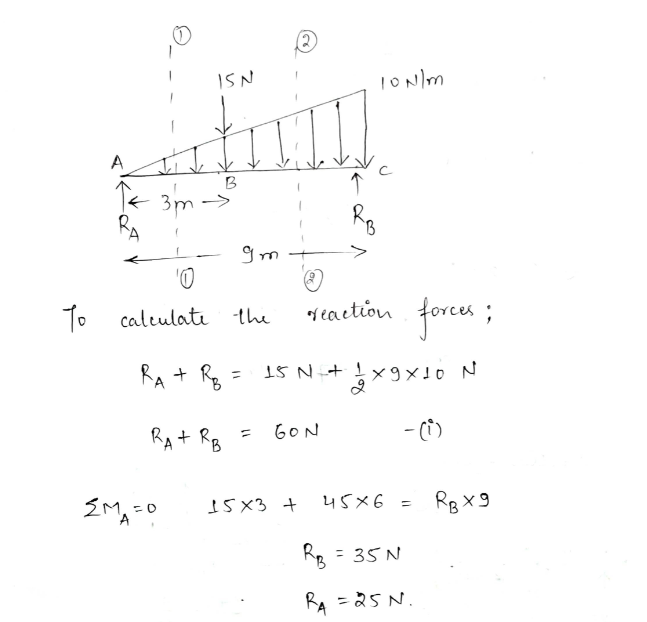 ① ②
15N 10 N/m
A B C
3m
R_A R_B
9m
① ②
To calculate the reaction forces;
R_A + R_B = 15 N + 1/2 × 9 × 10 N
R_A + R_B = 60N -(i)
ΣM_A = 0 15 × 3 + 45 × 6 = R_B × 9
R_B = 35 N
R_A = 25 N.